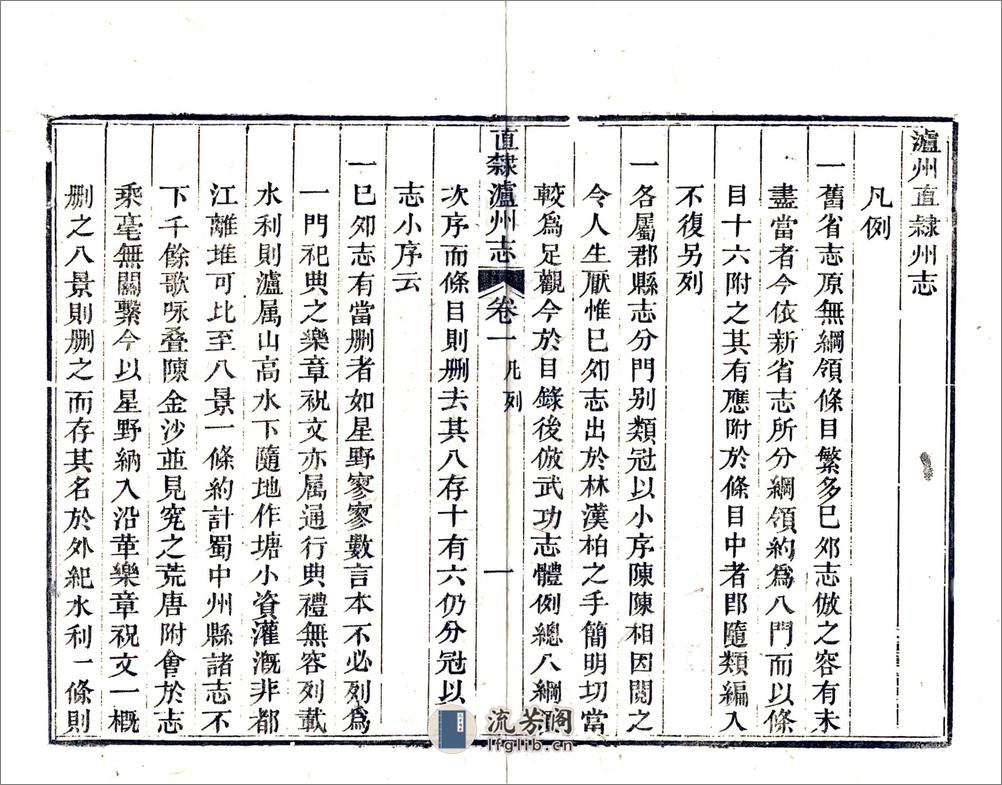 瀘州直隸州志
凡例
一舊省志原無綱領條目繁多巳夘志倣之容有未
盡當者今依新省志所分綱領約爲八門而以條
目十六附之其有應附於條目中者卽隨類編入
不復另列
一各屬郡縣志分門别類冠以小序陳陳相因閱之
令人生厭惟巳夘志出於林漢柏之手簡明切當
較爲足觀今於目錄後倣武功志體例總八綱
直隸瀘州志 卷一 凡列 一
次序而條目則删去其八存十有六仍分冠以
志小序云
一巳夘志有當删者如星野寥寥數言本不必列爲
一門祀典之樂章祝文亦属通行典禮無容列載
水利則瀘属山高水下隨地作塘小資灌漑非都
江離堆可比至八景一條約計蜀中州縣諸志不
下千餘歌咏叠陳金沙並見究之荒唐附會於志
乘毫無關繫今以星野納入沿革樂章祝文一概
删之八景則删之而存其名於外紀水利一條則
流芳阁
lfglib.cn